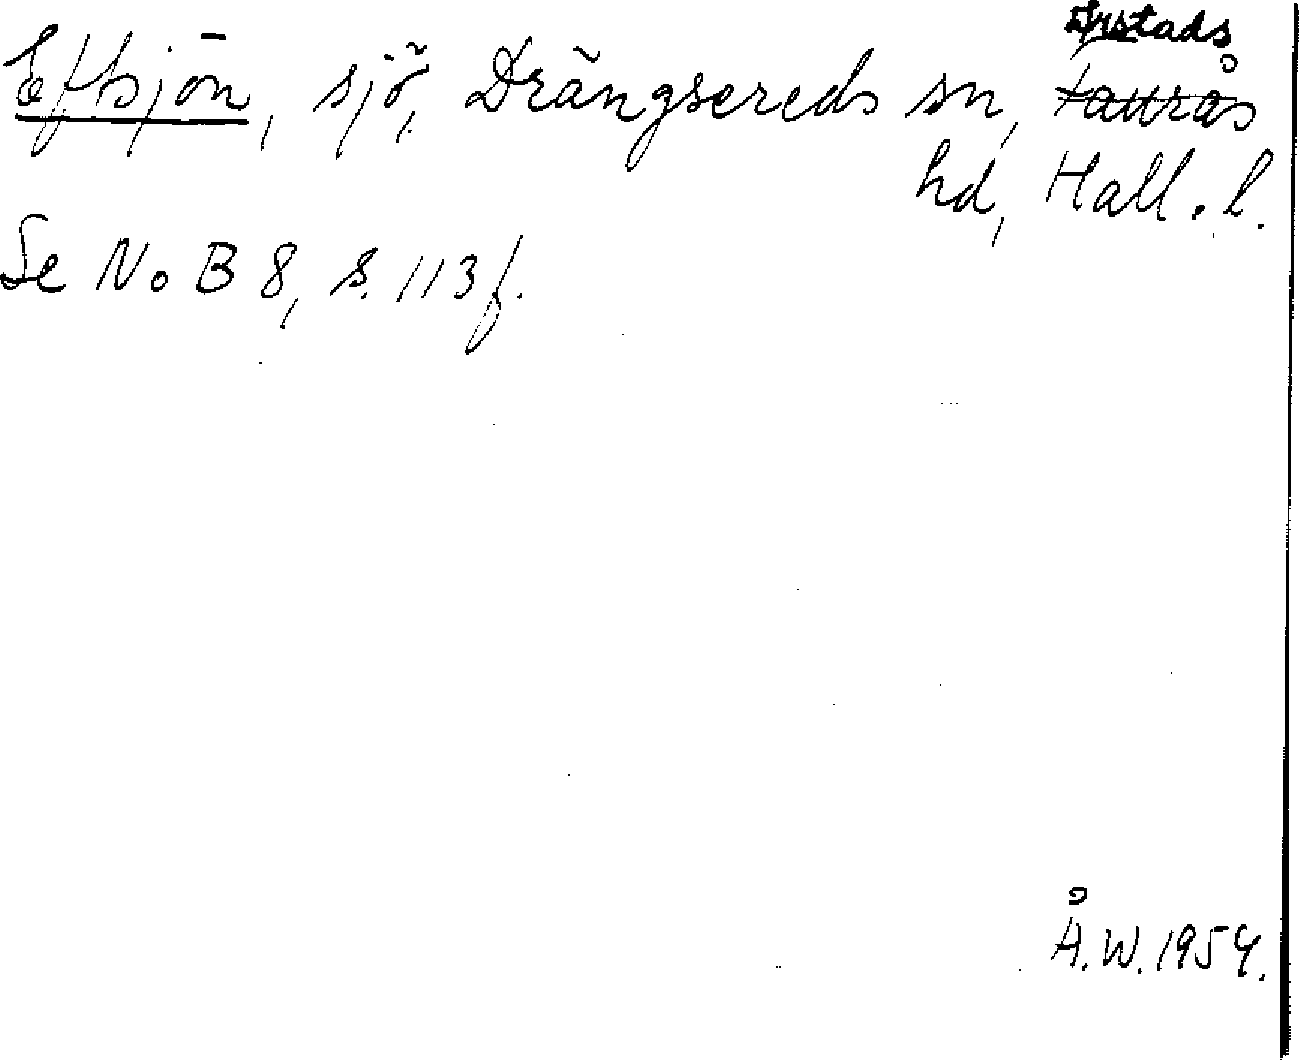 Årstads
Eftsjön, sjö, Drängsereds sn, Faurås
hd, Hall. l.
Se NoB 8, s. 113 f.
Å. W. 1954.